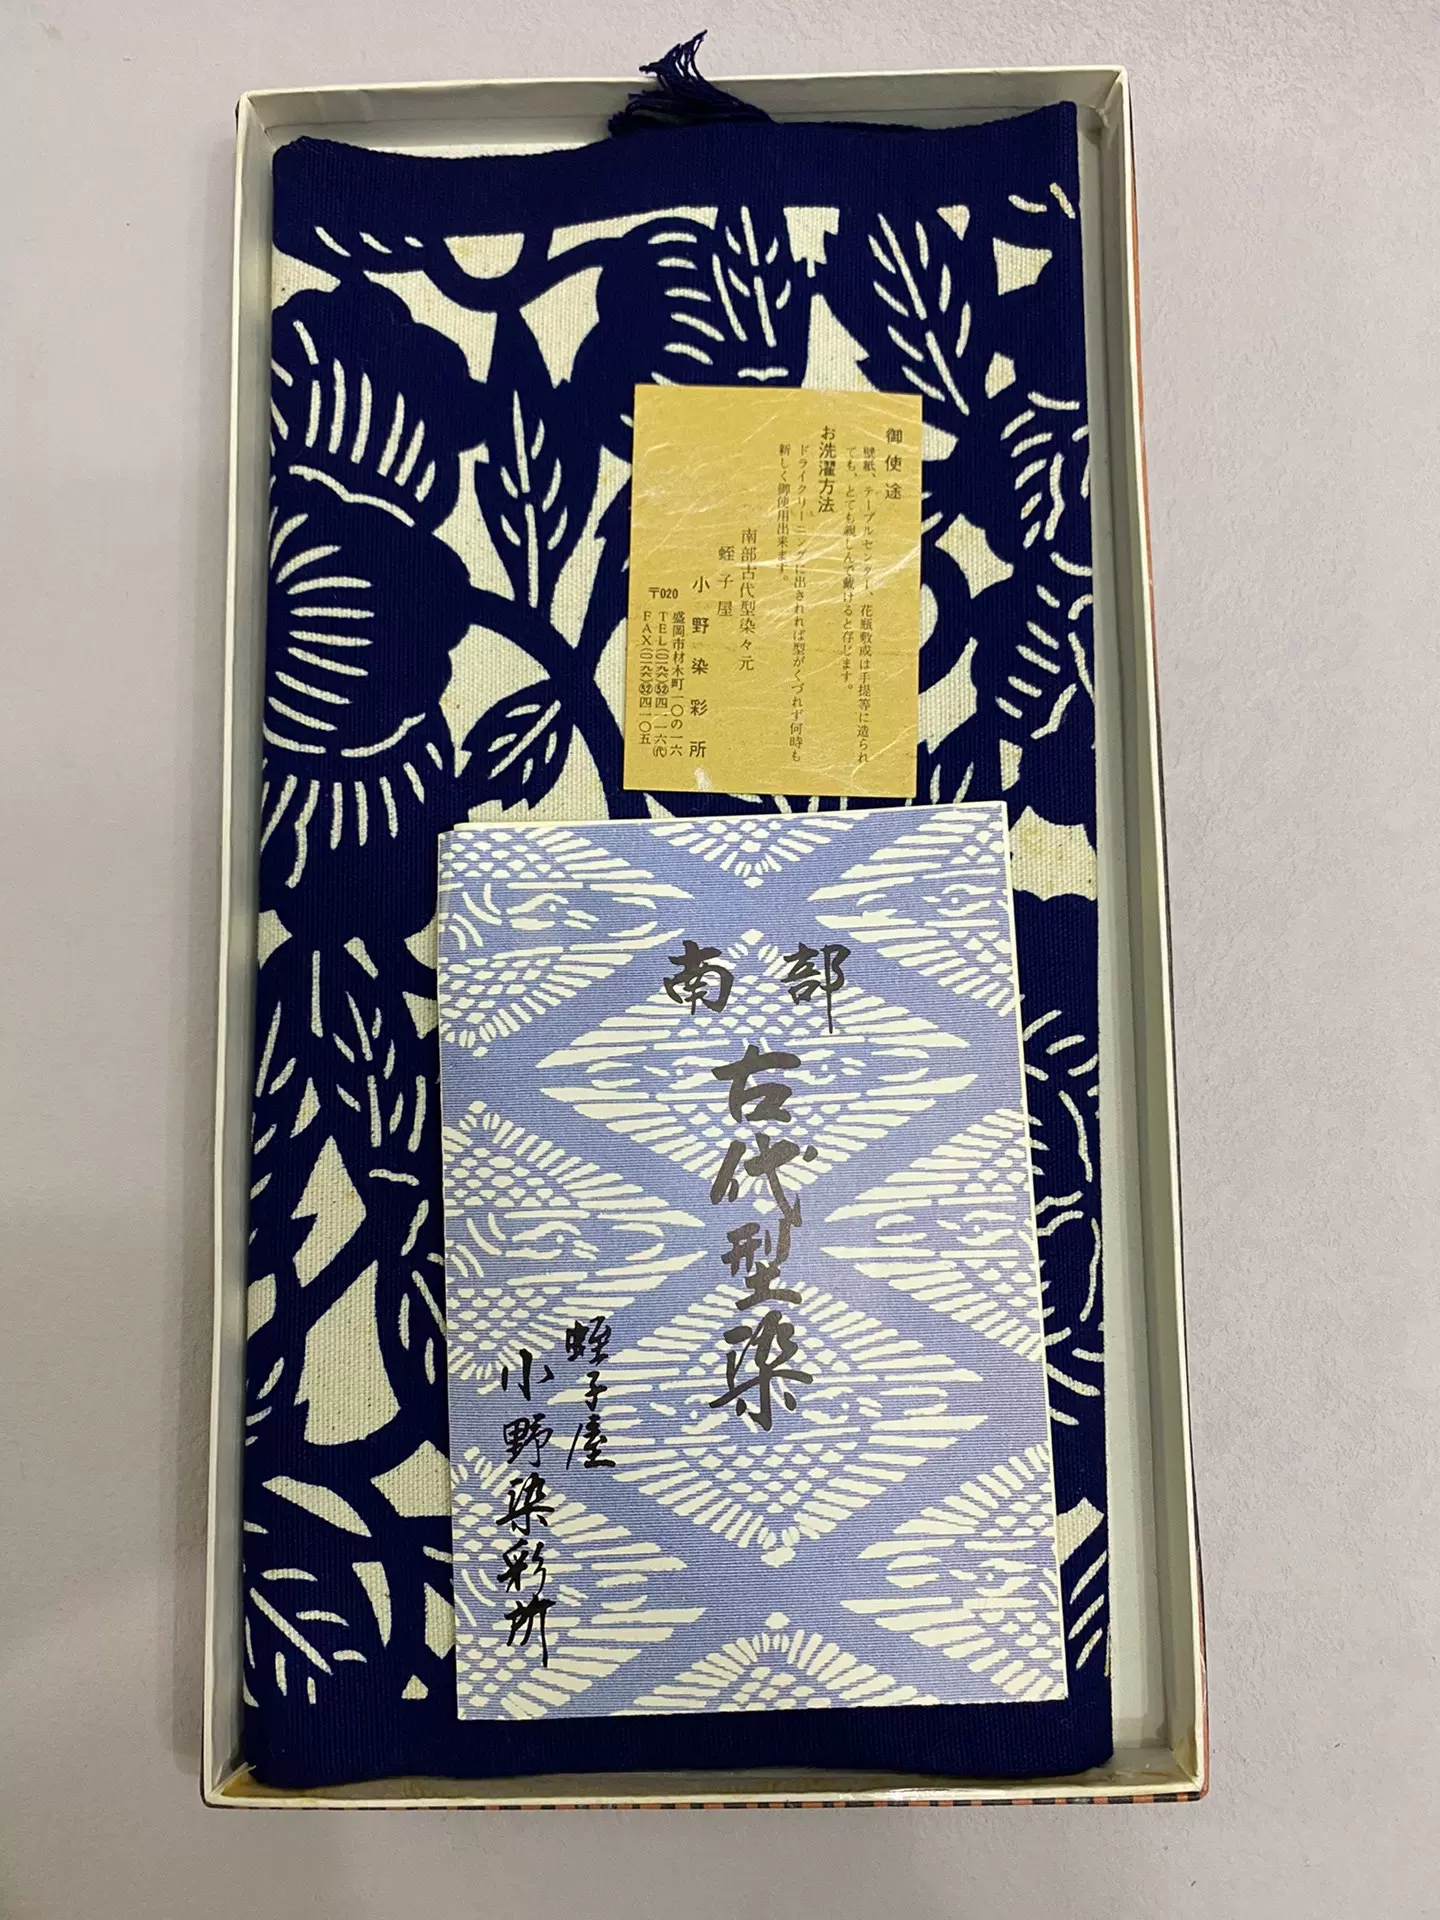 御使途
壁紙、テーブルセンター、花瓶敷或は手提等に造られ
ても、とても親しんで戴けると存じます。
お洗濯方法
ドライクリーニングに出されれば型がくづれず何時も
新しく御使用出来ます。
南部古代型染々元
蛭子屋
小野染彩所
〒020
盛岡市材木町一〇の一六
TEL(〇一九六)52四一一六(代)
FAX(〇一九六)52四一〇五
南部
古代型染
蛭子屋
小野染彩所